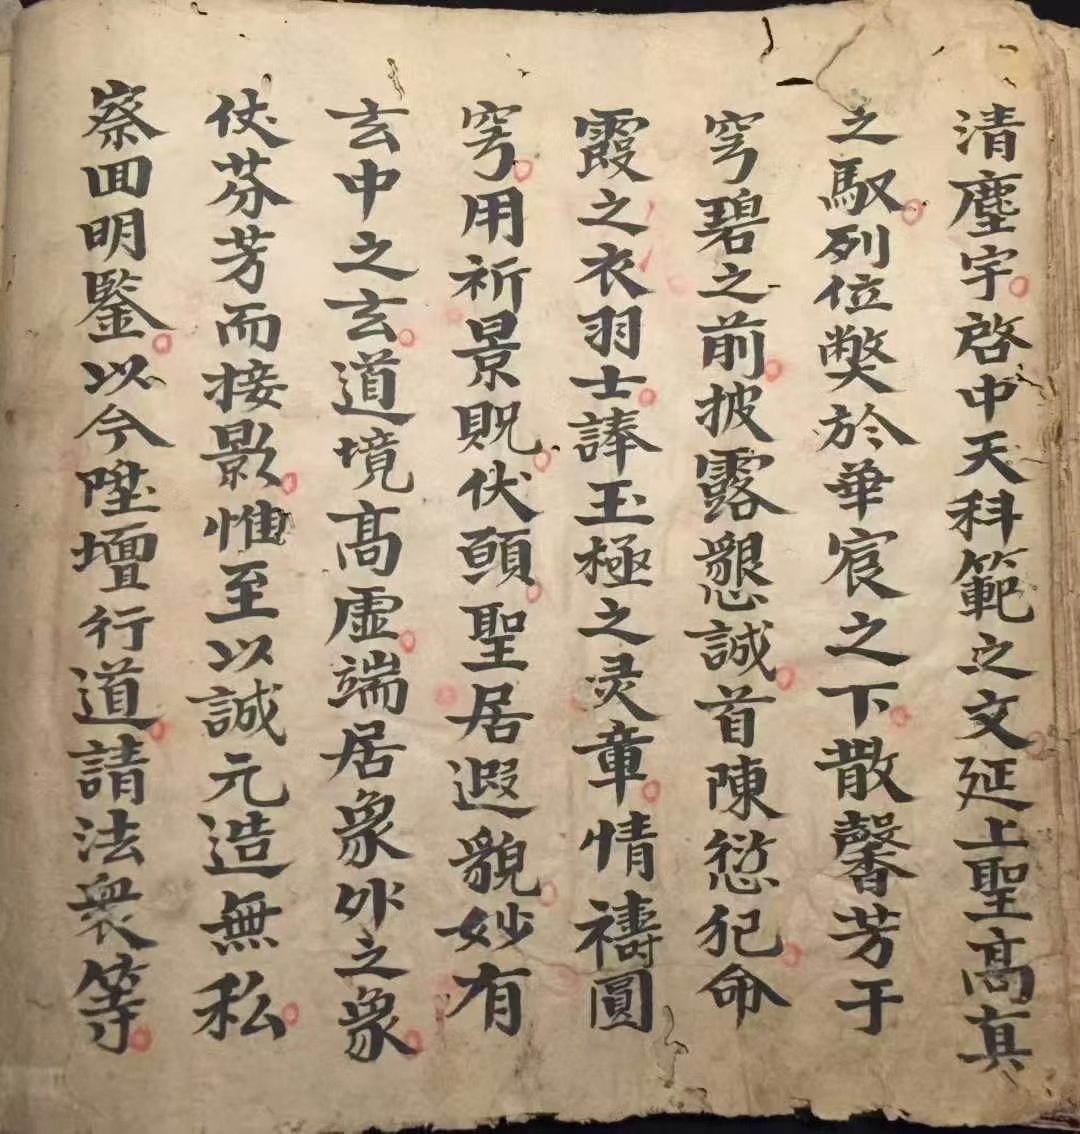 清塵宇啓中天科範之文延上聖高真
之馭列位獘於華宸之下散馨芳于
穹碧之前披露懇誠首陳愆犯命
霞之衣羽士捧玉極之灵章情禱圓
穹用祈景貺伏願聖居遐貌妙有
玄中之玄道境高虛端居象外之象
伏芬芳而接影惟至以誠元造無私
察回明鑒以今陞壇行道請法衆等